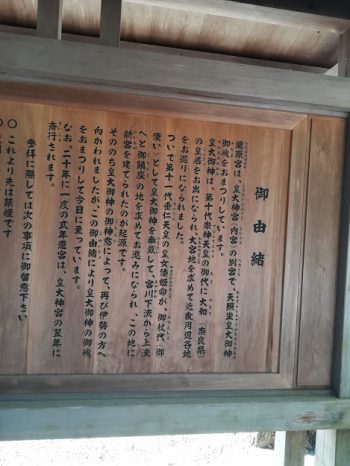 御由緒
瀧原宮は、皇大神宮(内宮)の別宮で、天照皇大御神
御魂をおまつりしています。
皇大御神は、第十代崇神天皇の御代に大和(奈良県)
の皇居をお出になられ、大宮地を求めて近畿周辺各地
をお巡りになられました。
ついで第十一代垂仁天皇の皇女倭姫命が、御杖代(御
使い)として皇大御神を奉戴して、宮川下流から上流
へと御鎮座の地を求めてお進みになられ、この地に
新宮を建てられたのが起源です。
そののち皇大御神の御神意によって、再び伊勢の方へ
向かわれましたが、この御由緒により皇大御神の御魂
をおまつりして今日に至っています。
なお、二十年に一度の式年遷宮は、皇大神宮の翌年に
斎行されます。
参拝に際しては次の事項に御留意下さい
○これより先は禁煙です